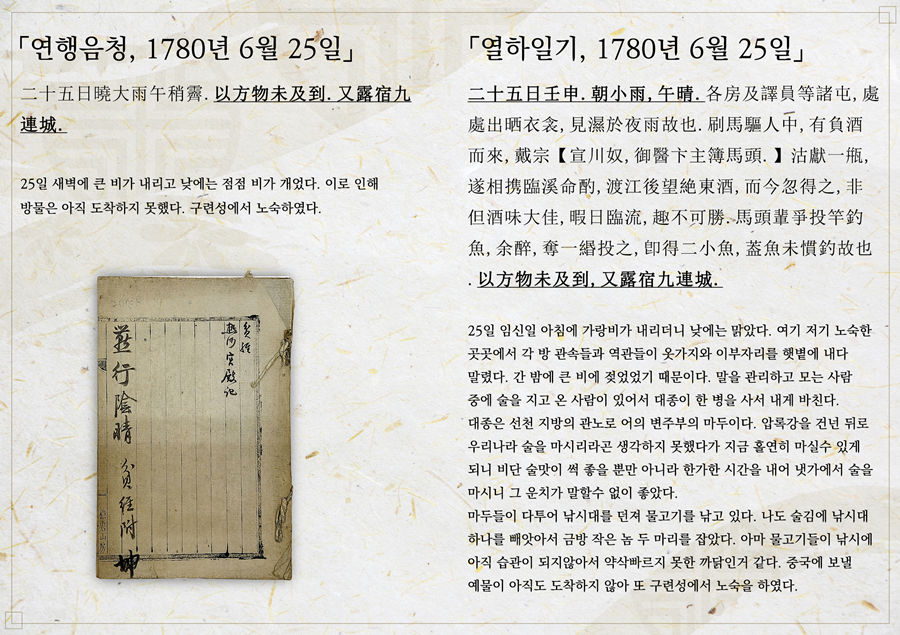 「연행음청, 1780년 6월 25일」
二十五日曉大雨午稍霽. 以方物未及到. 又露宿九
連城.
25일 새벽에 큰 비가 내리고 낮에는 점점 비가 개었다. 이로 인해
방물은 아직 도착하지 못했다. 구련성에서 노숙하였다.
燕行陰晴 貧經附 坤
「열하일기, 1780년 6월 25일」
二十五日壬申. 朝小雨, 午晴. 各房及譯員等諸屯, 處
處出晒衣衾, 見濕於夜雨故也. 刷馬驅人中, 有負酒
而來, 戴宗【宣川奴, 御醫卞主簿馬頭. 】沽獻一甁,
遂相携臨溪命酌, 渡江後望絶東酒, 而今忽得之, 非
但酒味大佳, 暇日臨流, 趣不可勝. 馬頭輩爭投竿釣
魚, 余醉, 奪一緡投之, 卽得二小魚, 蓋魚未慣釣故也
. 以方物未及到, 又露宿九連城.
25일 임신일 아침에 가랑비가 내리더니 낮에는 맑았다. 여기 저기 노숙한
곳곳에서 각 방 관속들과 역관들이 옷가지와 이부자리를 햇볕에 내다
말렸다. 간 밤에 큰 비에 젖었었기 때문이다. 말을 관리하고 모는 사람
중에 술을 지고 온 사람이 있어서 대종이 한 병을 사서 내게 바친다.
대종은 선천 지방의 관노로 어의 변주부의 마두이다. 압록강을 건넌 뒤로
우리나라 술을 마시리라곤 생각하지 못했다가 지금 홀연히 마실수 있게
되니 비단 술맛이 썩 좋을 뿐만 아니라 한가한 시간을 내어 냇가에서 술을
마시니 그 운치가 말할수 없이 좋았다.
마두들이 다투어 낚시대를 던져 물고기를 낚고 있다. 나도 술김에 낚시대
하나를 빼앗아서 금방 작은 놈 두 마리를 잡았다. 아마 물고기들이 낚시에
아직 습관이 되지않아서 약삭빠르지 못한 까닭인거 같다. 중국에 보낼
예물이 아직도 도착하지 않아 또 구련성에서 노숙을 하였다.